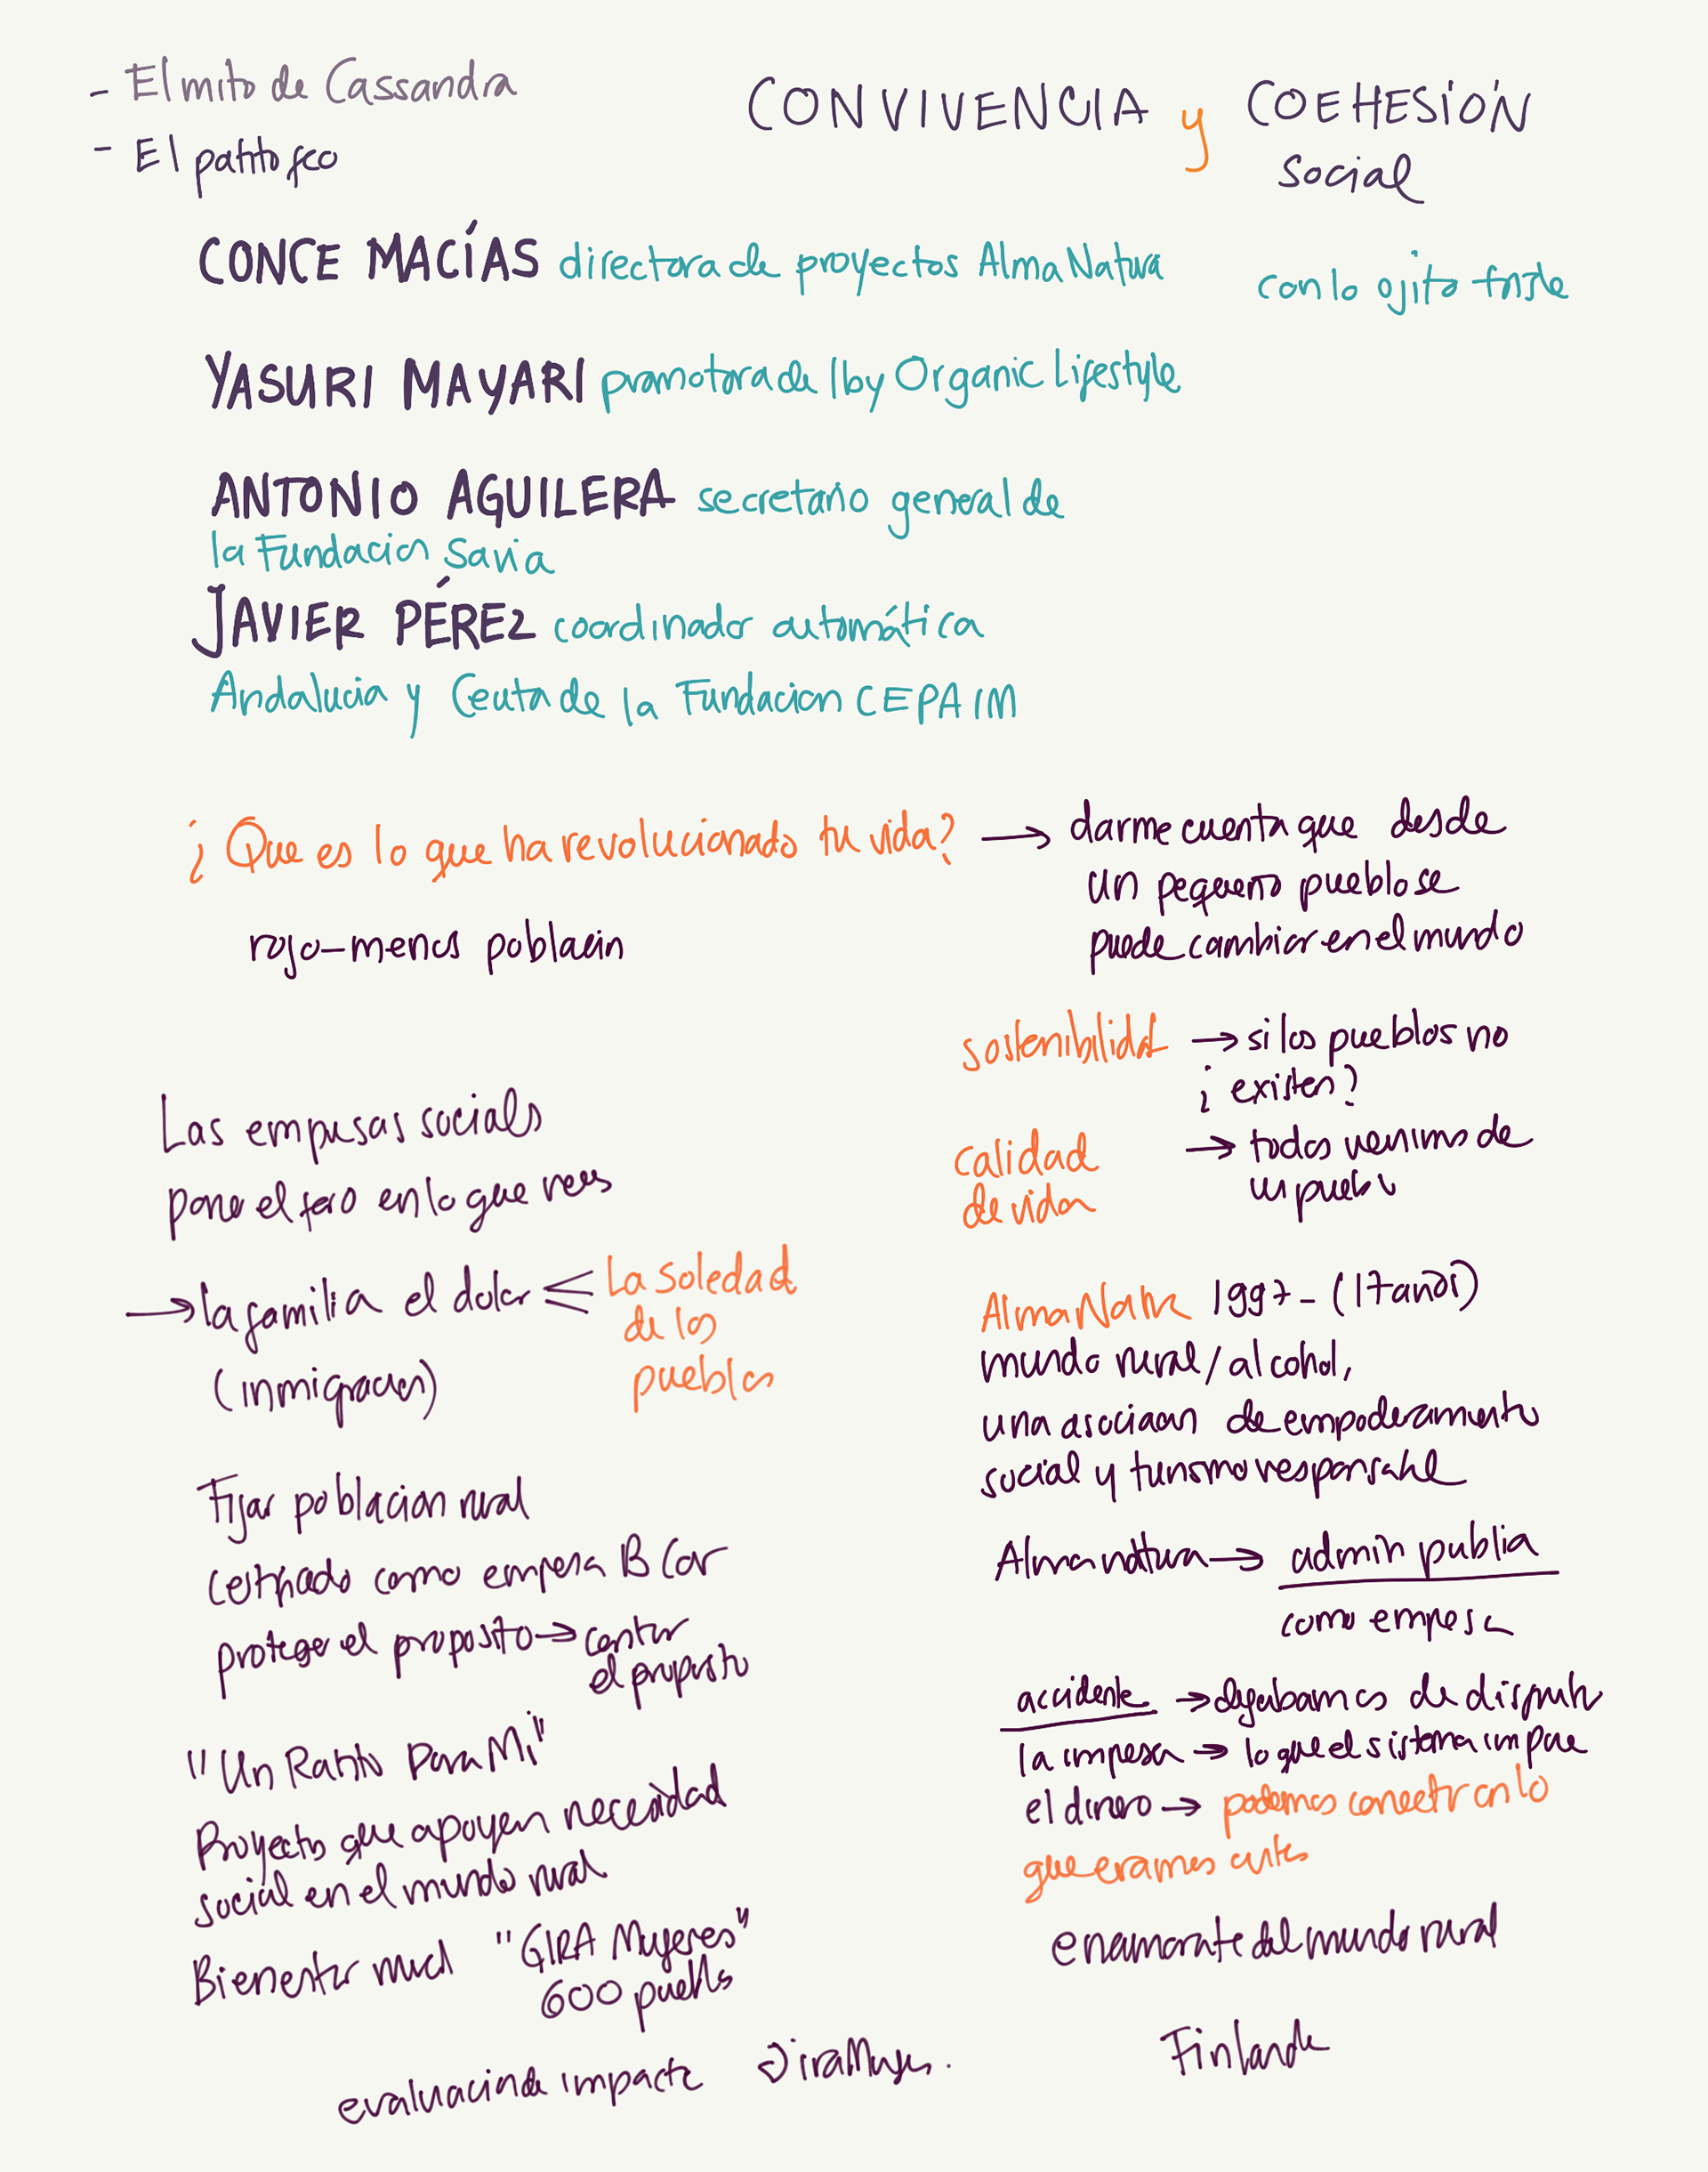 - El mito de Cassandra
- El patito feo
CONVIVENCIA y COEHESIÓN
social
CONCE MACÍAS directora de proyectos AlmaNatura
con lo ojito triste
YASURI MAYARI promotora de Iby Organic Lifestyle
ANTONIO AGUILERA secretario general de
la Fundacion Savia
JAVIER PÉREZ coordinador automática
Andalucia y Ceuta de la Fundacion CEPAIM
¿Que es lo que ha revolucionado tu vida? → darme cuenta que desde
un pequeño pueblo se
puede cambiar en el mundo
rojo-menos poblacin
sostenibilidad → si los pueblos no
¿ existen?
calidad
de vida
→ todos venimos de
un pueblo
Las empresas sociales
pone el foco en lo que
→ la familia el dolor
(inmigracion)
La soledad
de los
pueblos
AlmaNatura 1997- (17 años)
mundo rural/alcohol,
una asociacion de empoderamiento
social y turismo responsable
Fijar poblacion rural
como empresa B Cor
proteger el proposito →
el proposito
Almanatura → admin publia
como empresa
accidente → dejabamos de disfrutar
la impresa → lo que el sistema impone
el dinero → podemos conectr con lo
que eramos antes
"Un Ratito Para Mi"
Proyectos que apoyen necesidad
social en el mundo rural
Bienestar "GIRA Mujeres"
600 pueblos
enamorate del mundo rural
evaluacion de impacto GiraMujeres.
Finlande